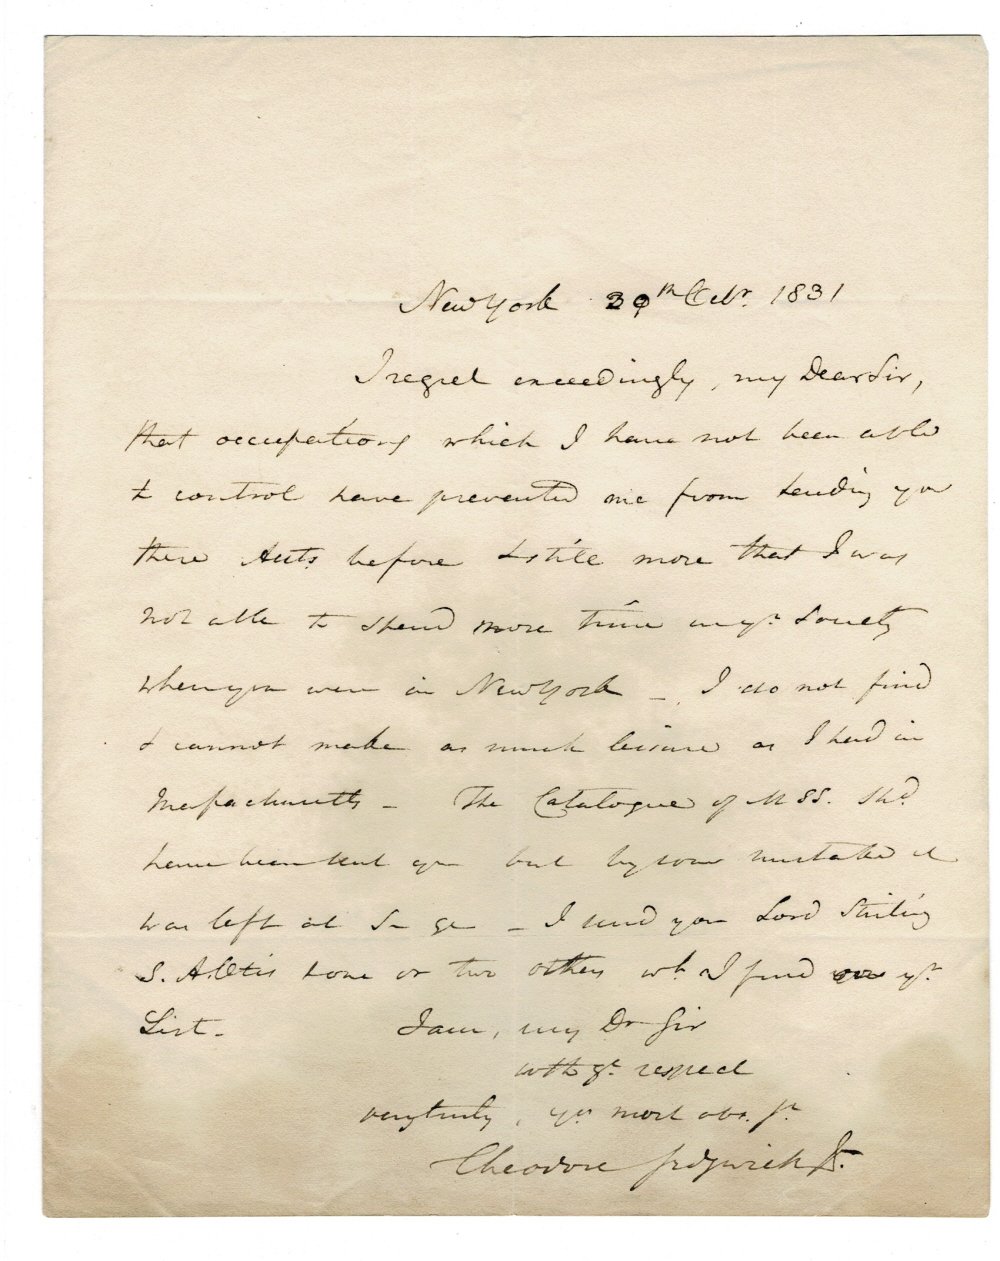 New York 30th Octbr. 1831
I regret exceedingly, my Dear Sir,
that occupations which I have not been able
to control have prevented me from sending you
these Auts. before & still more that I was
not able to spend more time in yr. Society
when you were in New York _ I do not find
& cannot make as much leisure as I had in
Massachusetts _ The Catalogue of MSS. shd.
have been sent you but by some mistake it
was left at _ I send you Lord Stirling
S. A. Otis & one or two others wh. I find on yr.
List _ I am, my Dr Sir
with gt. respect
very truly, yr. most obt. St.
Theodore Sedgwick Jr.